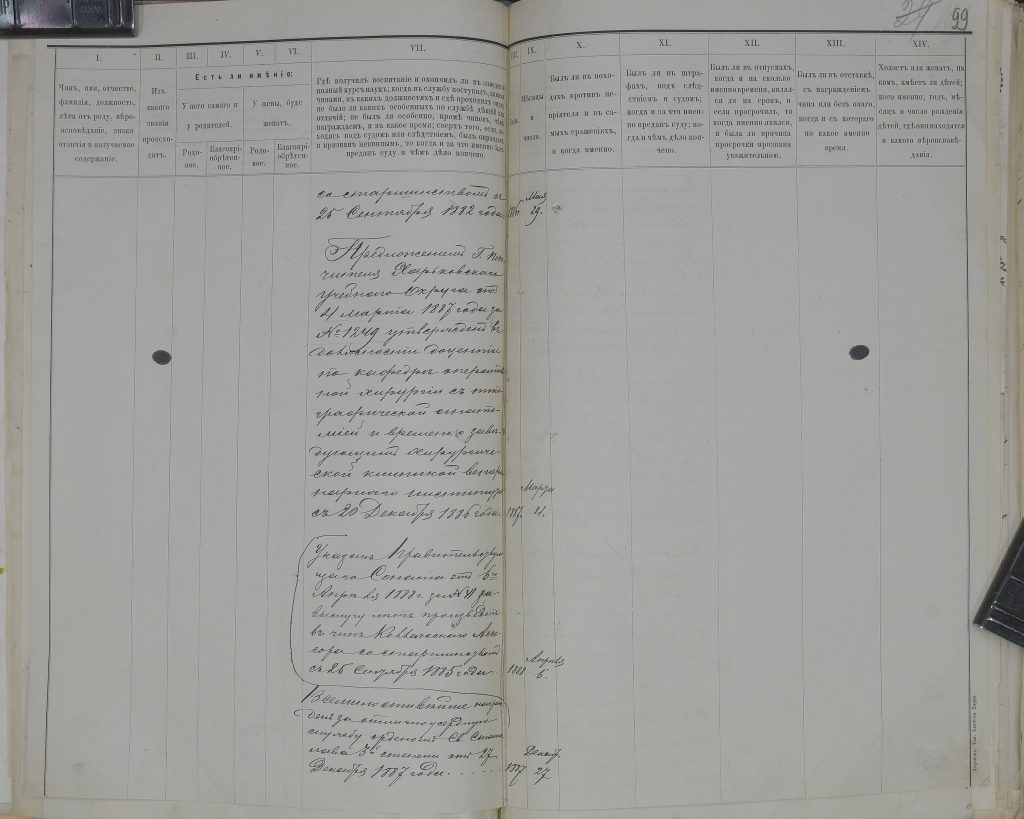 99
I.
II.
III.
IV.
V.
VI.
VII.
VIII.
IX.
X.
XI.
XII.
XIII.
XIV.
Чинъ, имя, отчество,
фамилія, должность,
лѣтъ отъ роду, вѣро-
исповѣданіе, знаки
отличія и получаемое
содержаніе.
Изъ
какого
званія
происхо-
дитъ.
Есть ли имѣніе:
У него самого и
у родителей.
У жены, буде
женатъ.
Родо-
вое.
Благопрі-
обрѣтен-
ное.
Родо-
вое.
Благопрі-
обрѣтен-
ное.
Гдѣ получилъ воспитаніе и окончилъ ли въ заведеніи
полный курсъ наукъ; когда въ службу вступилъ, какими
чинами, въ какихъ должностяхъ и гдѣ проходилъ оную;
не было ли какихъ особенныхъ по службѣ дѣяній или
отличій; не былъ ли особенно, кромѣ чиновъ, чѣмъ
награждаемъ, и въ какое время; сверхъ того, если, на-
ходясь подъ судомъ или слѣдствіемъ, былъ оправданъ
и признанъ невиннымъ, то когда и за что именно былъ
преданъ суду и чѣмъ дѣло кончено.
Годы.
Мѣсяцы
и
числа.
Былъ ли въ похо-
дахъ противъ не-
пріятеля и въ са-
мыхъ сраженіяхъ,
и когда именно.
Былъ ли въ штра-
фахъ, подъ слѣд-
ствіемъ и судомъ;
когда и за что имен-
но преданъ суду; ко-
гда и чѣмъ дѣло кон-
чено.
Былъ ли въ отпускахъ,
когда и на сколько
именно времени, являл-
ся ли на срокъ, и
если просрочилъ, то
когда именно явился,
и была ли причина
просрочки признана
уважительною.
Былъ ли въ отставкѣ,
съ награжденіемъ
чина или безъ онаго,
когда и съ котораго
по какое именно
время.
Холостъ или женатъ, на
комъ, имѣетъ ли дѣтей;
кого именно; годъ, мѣ-
сяцъ и число рожденія
дѣтей, гдѣ они находятся
и какого вѣроисповѣ-
данія.
со старшинствомъ съ
25 Сентября 1882 года
1886.
Мая
29.
Предложеніемъ Г. Попе-
чителя Харьковскаго
учебнаго Округа отъ
4 Марта 1887 года за
№ 1249 утвержденъ въ
должности доцента
по кафедрѣ оператив-
ной хирургіи съ топо-
графической анато-
міей и временно завѣ-
дующимъ хирургиче-
ской клиникой ветери-
нарнаго института
съ 20 Декабря 1886 года.
1887.
Марта
4.
Указомъ Правительствую-
щаго Сената отъ 6го
Апрѣля 1888 г. за № 41 за
выслугу лѣтъ произведенъ
въ чинъ Коллежскаго Ассе-
сора со старшинствомъ
съ 25 Сентября 1885 года
1888
Апрѣля
6.
Всемилостивѣйше награж-
денъ за отлично усердную
службу орденомъ Св. Станис-
лава 3й степени отъ 27
Декабря 1887 года.....
1887
Декабр.
27